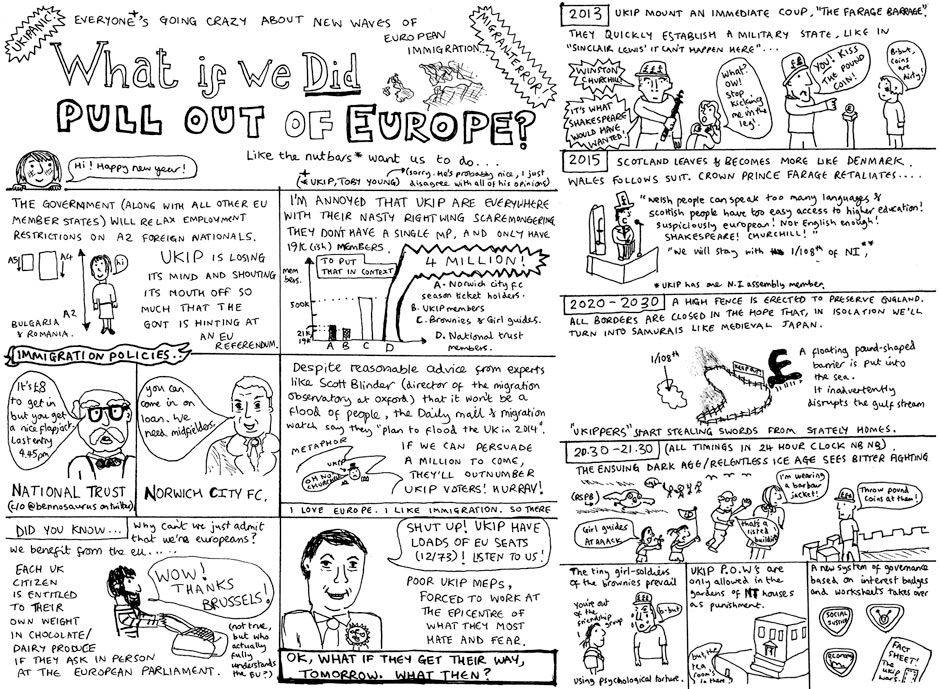 UKIPANIC.
EVERYONE+'S GOING CRAZY ABOUT NEW WAVES OF
EUROPEAN
IMMIGRATION...
MIGRANTERROR!
What if we Did
PULL OUT OF EUROPE?
Like the nutbars* want us to do...
+ *UKIP, TOBY YOUNG) (sorry. He's probably nice, I just
disagree with all of his opinions)
Hi! Happy new year!
THE GOVERNMENT (ALONG WITH ALL OTHER EU
MEMBER STATES) WILL RELAX EMPLOYMENT
RESTRICTIONS ON A2 FOREIGN NATIONALS.
A5
A4
Hi
A2
BULGARIA
& ROMANIA.
UKIP IS LOSING
ITS MIND AND SHOUTING
ITS MOUTH OFF SO
MUCH THAT THE
GOVT IS HINTING AT
AN EU
REFERENDUM.
I'M ANNOYED THAT UKIP ARE EVERYWHERE
WITH THEIR NASTY RIGHTWING SCAREMONGERING
THEY DON'T HAVE A SINGLE MP, AND ONLY HAVE
19K (ish) MEMBERS.
TO PUT
THAT IN CONTEXT
4 MILLION!
mem
bers.
500K
21K
19K
A B C D
A. Norwich city f.c
season ticket holders.
B. UKIP members
C. Brownies & Girl guides.
D. National trust
members.
IMMIGRATION POLICIES..
It's £8
to get in
but you get
a nice flapjack.
Last entry
4.45pm
NATIONAL TRUST
(c/o @bennosaurus on twitter)
you can
come in on
loan. We
need midfielders.
NORWICH CITY FC.
Despite reasonable advice from experts
like Scott Blinder (director of the migration
observatory at oxford) that it won't be a
flood of people, the Daily mail & migration
watch say they "plan to flood the UK in 2014".
METAPHOR
UKIP
OH NO!
CHURCHILL!
IF WE CAN PERSUADE
A MILLION TO COME,
THEY'LL OUTNUMBER
UKIP VOTERS! HURRAY!
I LOVE EUROPE. I LIKE IMMIGRATION. SO THERE
DID YOU KNOW... Why can't we just admit
that we're europeans?
We benefit from the eu....
EACH UK
CITIZEN
IS ENTITLED
TO THEIR
OWN WEIGHT
IN CHOCOLATE/
DAIRY PRODUCE
IF THEY ASK IN PERSON
AT THE EUROPEAN PARLIAMENT.
WOW!
THANKS
BRUSSELS!
(not true,
but who
actually
fully
understands
the EU?)
SHUT UP! UKIP HAVE
LOADS OF EU SEATS
(12/73)! LISTEN TO US!
POOR UKIP MEPS,
FORCED TO WORK AT
THE EPICENTRE OF
WHAT THEY MOST
HATE AND FEAR.
OK, WHAT IF THEY GET THEIR WAY,
TOMORROW. WHAT THEN?
2013 UKIP MOUNT AN IMMEDIATE COUP, "THE FARAGE BARRAGE".
THEY QUICKLY ESTABLISH A MILITARY STATE, LIKE IN
"SINCLAIR LEWIS' IT CAN'T HAPPEN HERE"...
WINSTON
CHURCHILL!
IT'S WHAT
SHAKESPEARE
WOULD HAVE
WANTED!
£££
What?
OW!
Stop
kicking
me in the
leg!
YOU! KISS
THE POUND
COIN!
B-but,
coins
are
dirty!
2015 SCOTLAND LEAVES & BECOMES MORE LIKE DENMARK.
WALES FOLLOWS SUIT. CROWN PRINCE FARAGE RETALIATES....
"Welsh people can speak too many languages &
scottish people have too easy access to higher education!
suspiciously european! Not English enough!
SHAKESPEARE! CHURCHILL!"
"We will stay with 1/108th of NI,"**
*UKIP has one N.I assembly member
2020 - 2030 A HIGH FENCE IS ERECTED TO PRESERVE ENGLAND.
ALL BORDERS ARE CLOSED IN THE HOPE THAT, IN ISOLATION WE'LL
TURN INTO SAMURAIS LIKE MEDIEVAL JAPAN.
1/108th
KEEP OUT
£
A floating pound-shaped
barrier is put into
the sea.
It inadvertently
disrupts the gulf stream
"UKIPPERS" START STEALING SWORDS FROM STATELY HOMES.
20:30 - 21.30 (ALL TIMINGS IN 24 HOUR CLOCK NB NB).
THE ENSUING DARK AGE/RELENTLESS ICE AGE SEES BITTER FIGHTING
(RSPB)
Girl guides
ATTAAACK
I'm wearing
a barbour
jacket!
that's a
listed
building
Throw pound
coins at them!
The tiny girl-soldiers
of the brownies prevail
you're out
of the
friendship
group
b-but
using psychological torture.
UKIP P.O.W's are
only allowed in the
gardens of NT houses
as punishment.
but, the
tea
room's
in there!
A new system of governance
based on interest badges
and worksheets takes over
SOCIAL
JUSTICE
Economy
FACT
SHEET!
The
UKIP
wars.